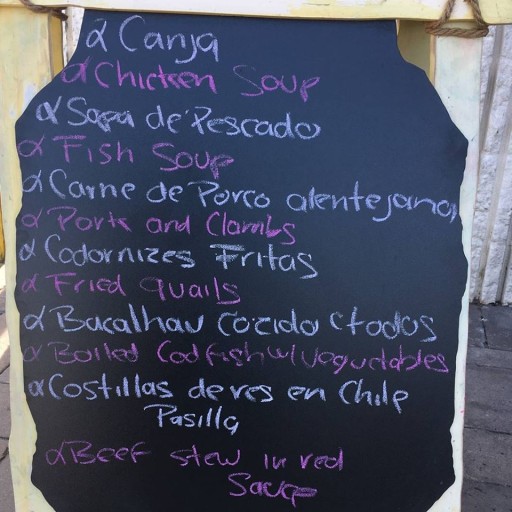 α Canja
α Chicken Soup
α Sopa de Pescado
α Fish Soup
α Carne de Porco alentejana
α Pork and Clambs
α Codornizes Fritas
α Fried quails
α Bacalhau Cozido c todos
α Boiled Codfish w/ veguetables
α Costillas de res en Chile
Pasilla
α Beef stew in red
Sauce